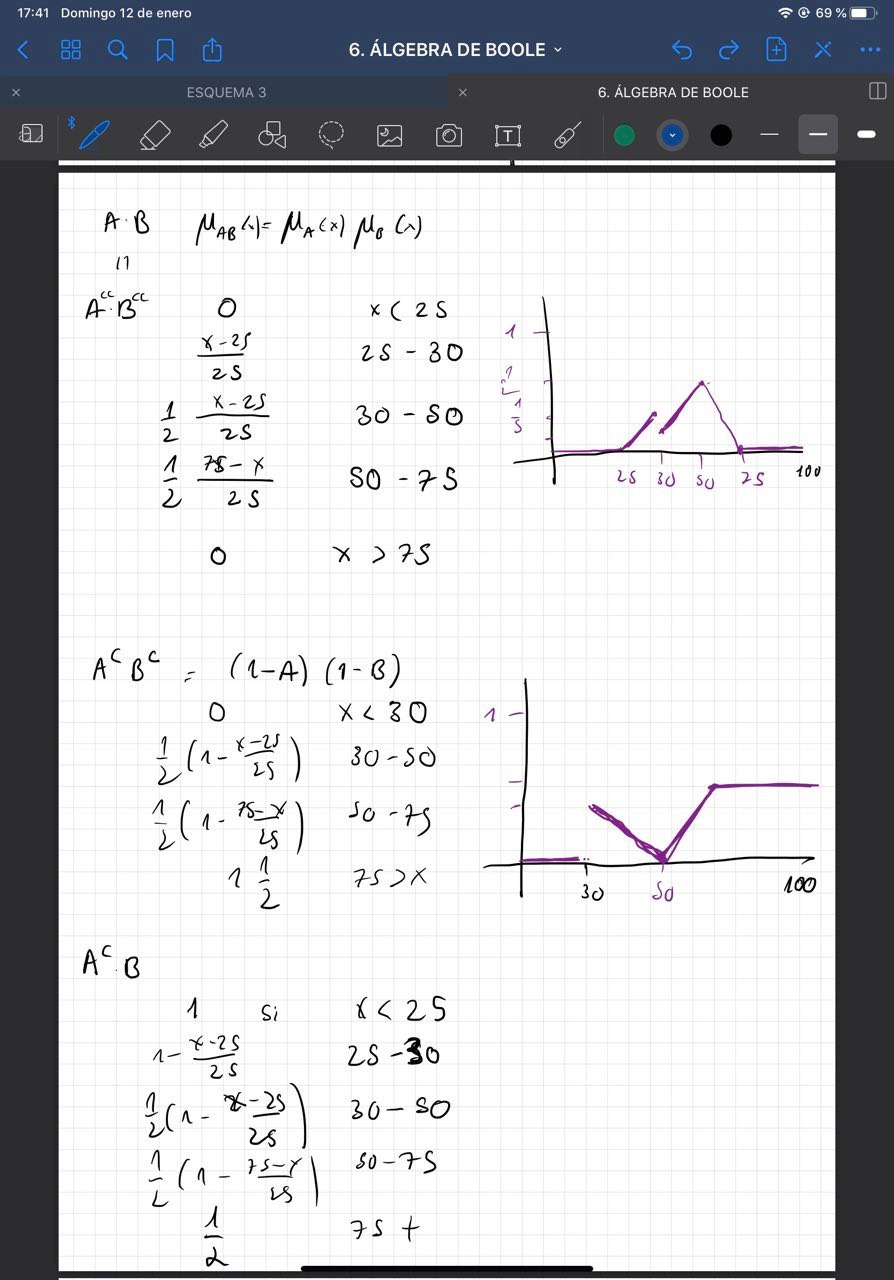 17:41 Domingo 12 de enero 69 %
6. ÁLGEBRA DE BOOLE
ESQUEMA 3 6. ÁLGEBRA DE BOOLE
T
A·B μ_AB(x) = μ_A(x) μ_B(x)
11
A^cc·B^cc 0 x < 25
x-25/25 25 - 30
1/2 x-25/25 30 - 50
1/2 75-x/25 50 - 75
0 x > 75
1
1/2
1/3
25 30 50 75 100
A^c B^c = (1-A) (1-B)
0 x < 30
1/2 (1 - x-25/25) 30-50
1/2 (1 - 75-x/25) 50-75
1 1/2 75 > x
1
30 50 100
A^c·B
1 si x < 25
1 - x-25/25 25-30
1/2 (1 - x-25/25) 30-50
1/2 (1 - 75-x/25) 50-75
1/2 75 +